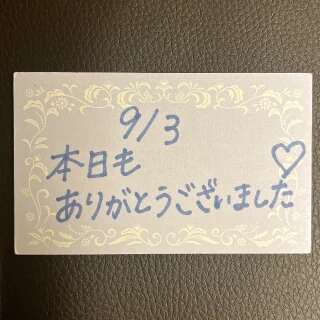 9/3
本日も ♡
ありがとうございました